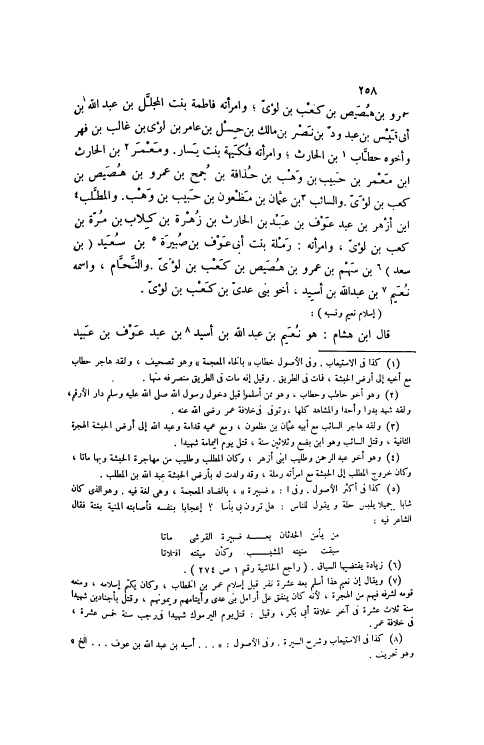 ٢٥٨
عمرو بن هُصَيْص بن كَعْب بن لُؤَىّ ؛ وامرأته فاطمة بنت المجلَّل بن عبد الله بن
أبى قَيْس بن عبد ودّ بن نَصْر بن مالك بن حِسْل بن عامر بن لؤى بن غالب بن فهر
وأخوه حطَّاب ١ بن الحارث ؛ وامرأته فُكَيْهَة بنت يَسار. ومَعْمَر ٢ بن الحارث
ابن مَعْمر بن حَبيب بن وَهْب بن حُذافة بن جُمح بن عمرو بن هُصَيْص بن
كعب بن لُؤَىّ . والسائب ٣ بن عثمان بن مَظْعون بن حَبيب بن وَهْب. والمطَّلب ٤
ابن أزهر بن عبد عَوْف بن عَبْد بن الحارث بن زُهْرة بن كِلاب بن مُرّة بن
كعب بن لؤىّ ، وامرأته : رَمْلة بنت أبى عَوْف بن صُبَيرة ٥ بن سُعَيد ( بن
سعد ) ٦ بن سَهْم بن عمرو بن هُصَيص بن كَعْب بن لُؤَىّ . والنَّحَّام ، واسمه
نُعَيم ٧ بن عبدالله بن أسيد ، أخو بنى عدىّ بن كَعْب بن لؤىّ .
( إسلام نعيم ونسبه ) :
قال ابن هشام : هو نُعَيم بن عبد الله بن أسيد ٨ بن عبد عَوْف بن عَبيد
(١) كذا فى الاستيعاب . وفى الأصول خطاب « بالخاء المعجمة » وهو تصحيف ، ولقد هاجر حطاب
مع أخيه إلى أرض الحبشة ، فمات فى الطريق . وقيل إنه مات فى الطريق منصرفه منها .
(٢) وهو أخو حاطب وحطاب ، وهو ممن أسلموا قبل دخول رسول الله صلى الله عليه وسلم دار الأرقم،
ولقد شهد بدرا وأحدا والمشاهد كلها، وتوفى فى خلافة عمر رضى الله عنه .
(٣) ولقد هاجر السائب مع أبيه عثمان بن مظعون ، ومع عميه قدامة وعبد الله إلى أرض الحبشة الهجرة
الثانية ، وقتل السائب وهو ابن بضع وثلاثين سنة ، قتل يوم اليمامة شهيدا .
(٤) وهو أخو عبد الرحمن وطليب ابنى أزهر ، وكان المطلب وطليب من مهاجرة الحبشة وبها ماتا ،
وكان خروج المطلب إلى الحبشة مع امرأته رملة ، وقد ولدت له بأرض الحبشة عبد الله بن المطلب .
(٥) كذا فى أكثر الأصول . وفى ا : « ضبيرة » ، بالضاد المعجمة ، وهى لغة فيه . وهو الذى كان
شابا جميلا يلبس حلة و يقول للناس : هل ترون بى بأسا ؟ إعجابا بنفسه فأصابته المنية بغتة فقال
الشاعر فيه :
من يأمن الحدثان بعد صبيرة القرشى ماتا
سبقت منيته المشيب وكأن ميتته افتلاتا
(٦) زيادة يقتضيها السياق . ( راجع الحاشية رقم ١ ص ٢٧٤ ) .
(٧) ويقال إن نعيم هذا أسلم بعد عشرة نفر قبل إسلام عمر بن الخطاب ، وكان يكتم إسلامه ، ومنعه
قومه لشرفه فيهم من الهجرة ، لأنه كان ينفق على أرامل بنى عدى وأيتامهم ويمونهم ، وقتل بأجنادين شهيدا
سنة ثلاث عشرة فى آخر خلافة أبى بكر، وقيل : قتل يوم اليرموك شهيدا فى رجب سنة خمس عشرة ،
فى خلافة عمر .
(٨) كذا فى الاستيعاب وشرح السيرة . وفى الأصول : « ... أسيد بن عبد الله بن عوف ... الخ »
وهو تحريف .